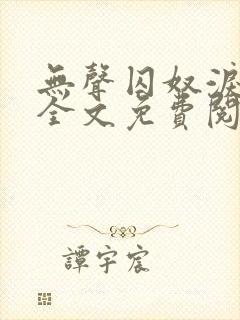 無聲囚奴淚
全文免費閱
譚宇宸